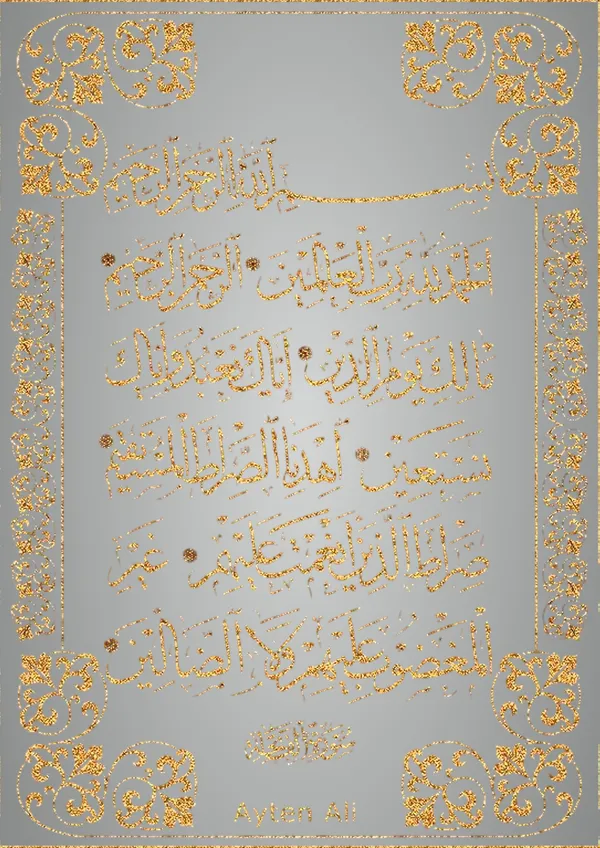 بسم الله الرحمن الرحيم
الحمد لله رب العلمين الرحمن الرحيم
مالك يوم الدين إياك نعبد وإياك
نستعين اهدنا الصراط المستقيم
صراط الذين أنعمت عليهم غير
المغضوب عليهم ولا الضالين
سورة الفاتحة
Ayten Ali